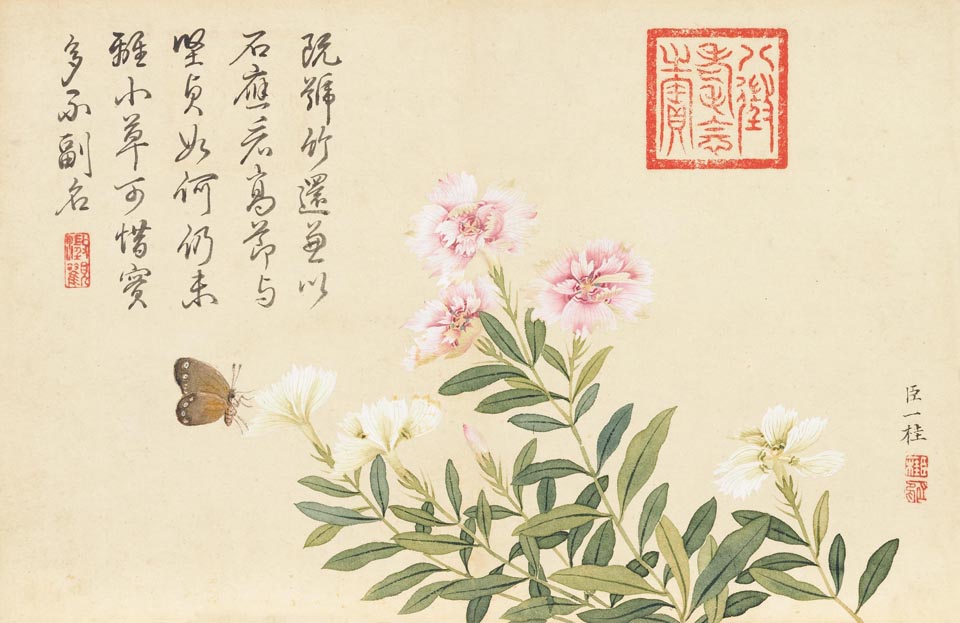 既號竹還兼以
石應看高節与
坚貞如何仍未
離小草可惜實
多不副名
八徵
耄念
之寶
臣一桂